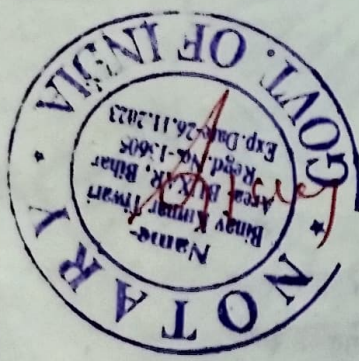 NOTARY
GOVT. OF INDIA
Name-
Binay Kumar Tiwari
Area BUXAR, Bihar
Regd. No.-13605
Exp.Date26.11.2023